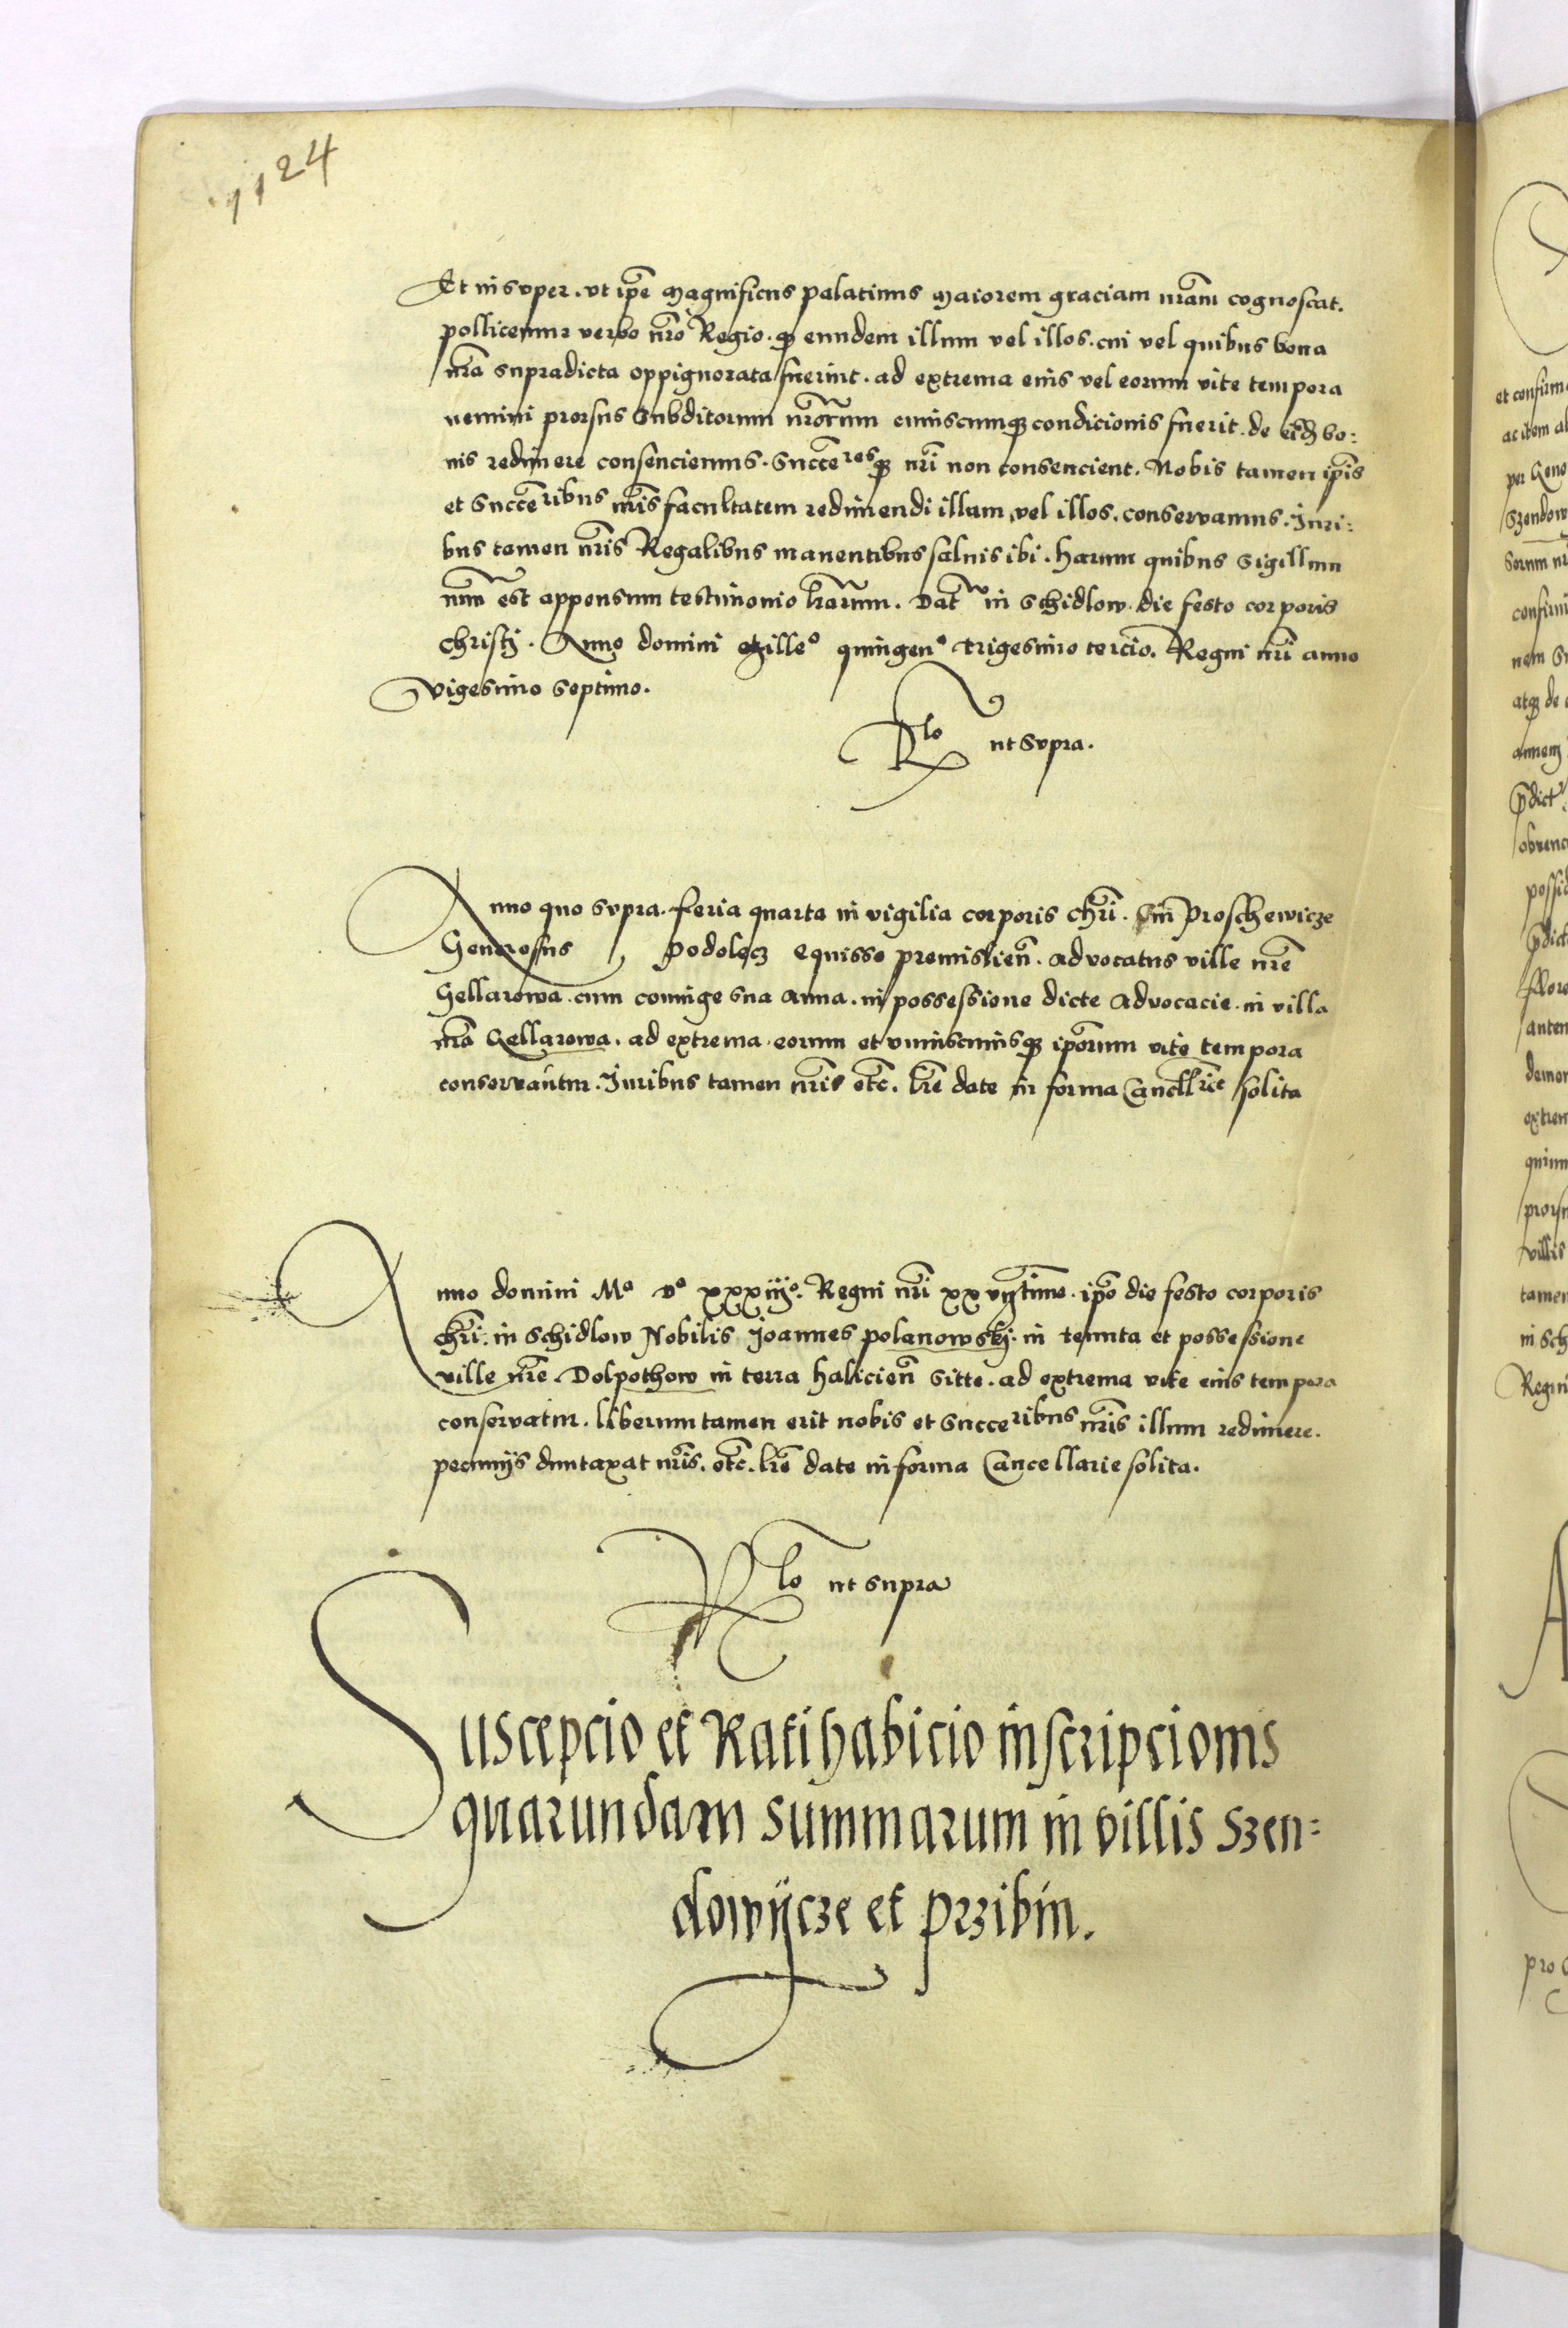 1124
Et insuper. ut ip̄e Magnificus palatinus Maiorem graciam nr̄am cognoscat.
pollicemur verbo nr̄o Regio. q̄ eundem illum vel illos. cui vel quibus bona
nr̄a supradicta oppignorata fuerint. ad extrema eius vel eorum vite tempora
nemini prorsus Subditorum nr̄orum cuiuscumqꝫ condicionis fuerit. de eisd̄ bo:
nis redimere consenciemus. Succēresqꝫ nr̄i non consencient. Nobis tamen ip̄is
et Succēribus nr̄is facultatem redimendi illum vel illos. conservamus. Juri:
bus tamen nr̄is Regalibus manentibus salvis ibi. harum quibus Sigillum
nr̄m est appensum testimonio lr̄arum. Dat̄ in Schidlow. die festo corporis
christi. Anno domini Milleº quingenº trigesimo tercio. Regni nr̄i anno
vigesimo septimo.
Rlo ut supra.
Anno quo supra. feria quarta in vigilia corporis chr̄i. in Proschewicze
Generosus Podolecz equisso premislien̄. advocatus ville nr̄e
Gellarowa. cum coniuge sua Anna. in possessione dicte Advocacie. in villa
nr̄a Gellarowa. ad extrema. eorum et uniuscuiusqꝫ ip̄orum vite tempora
conservantur. Juribus tamen nr̄is etc̄. lr̄e date in forma Cancell̄rie solita
Anno domini Mº vº xxxiijº. Regni nr̄i xxvijtimo. ip̄o die festo corporis
chr̄i. in Schidlow Nobilis Joannes polanowskj. in tenuta et possessione
ville nr̄e. Dolpothow in terra halicien̄ sitte. ad extrema vite eius tempora
conservatur. liberum tamen erit nobis et Succeribus nr̄is illum redimere.
pecunijs duntaxat nr̄is. etc̄. lr̄e date in forma Cancellarie solita.
Rlo ut supra
Suscepcio et Ratihabicio inscripcionis
quarundam summarum in villis Szen:
dowijcze et przibin.